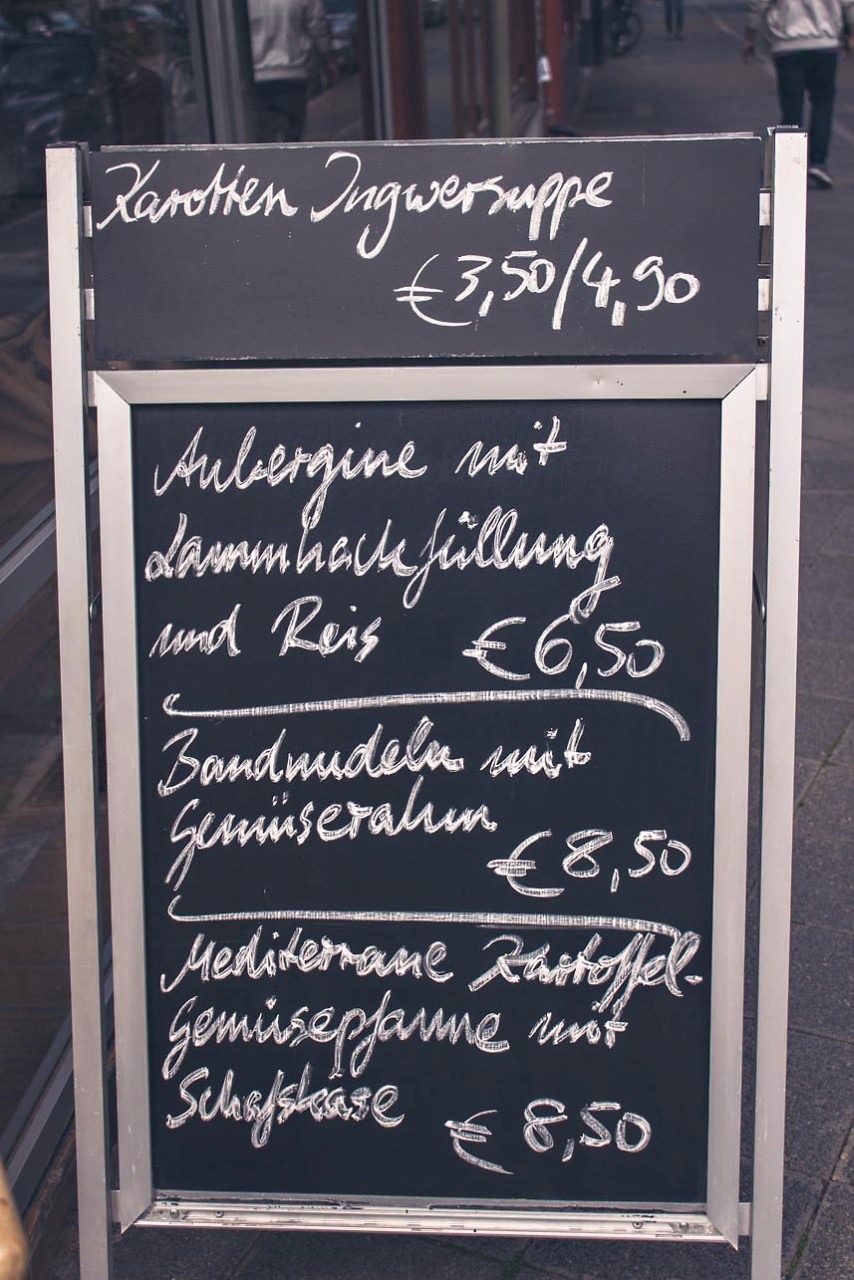 Karotten Ingwersuppe
€3,50/4,90
Aubergine mit
Lammhackfüllung
und Reis €6,50
Bandnudeln mit
Gemüserahm
€8,50
Mediterrane Kartoffel-
gemüsepfanne mit
Schafskäse
€ 8,50